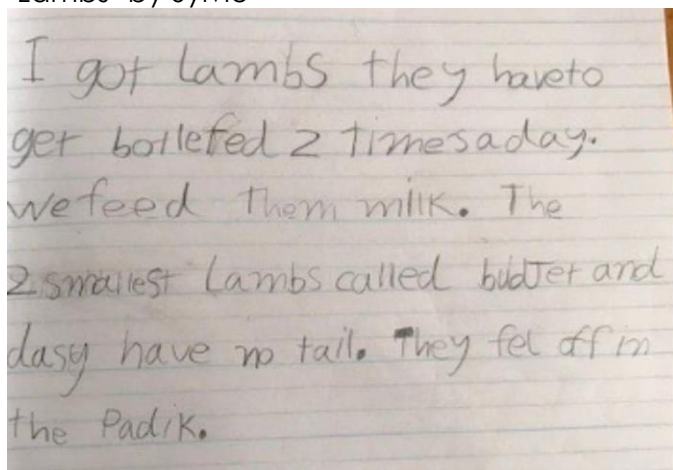 I got lambs they haveto
get bottlefed 2 timesaday.
we feed them milk. The
2 smallest lambs called and
dasy have no tail. They fel off in
the Padik.